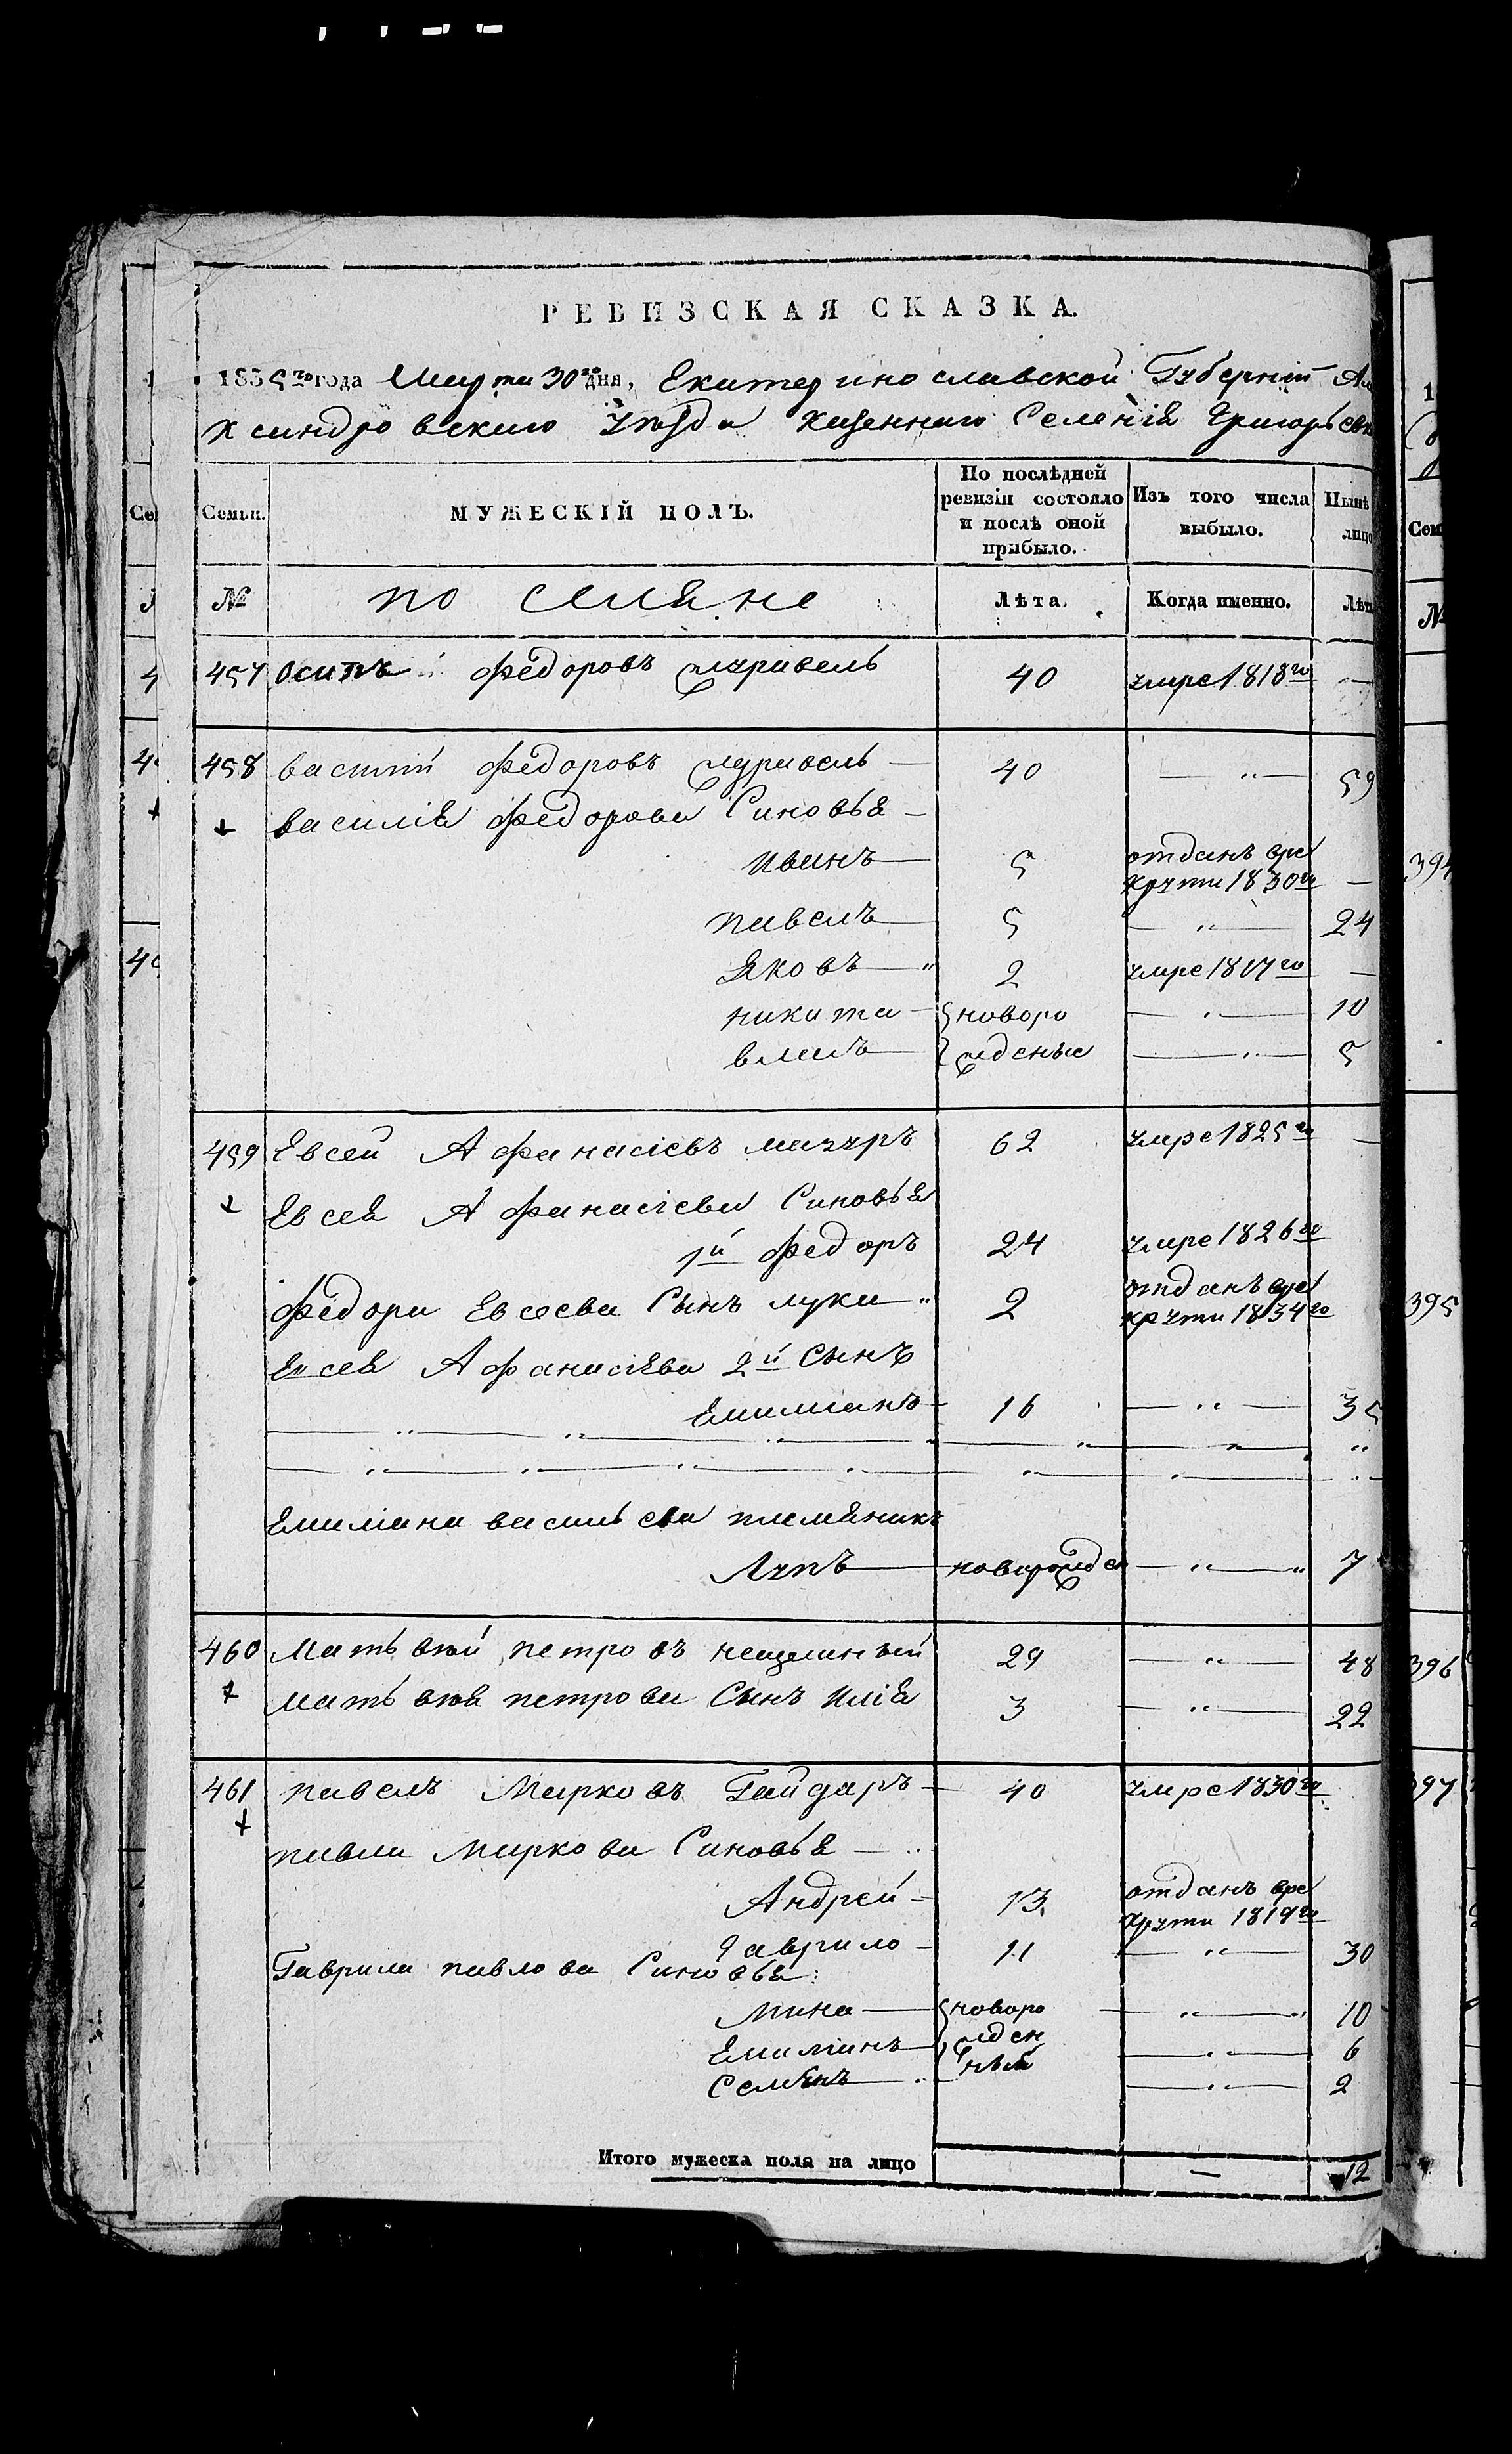 РЕВИЗСКАЯ СКАЗКА.
1835го года Марта 30го дня, Екатериносла­вской Губерніи Але
ксандровскаго Уѣзда казеннаго Селенія Григорьевк
Семьи. МУЖЕСКІЙ ПОЛЪ. По послѣдней ревизіи состояло и послѣ оной прибыло. Изъ того числа выбыло. Нынѣ лицо
№ поселяне Лѣта. Когда именно. Лѣта
457 Осипъ Федоровъ журавель 40 умре 1818го —
458 василій Федоровъ журавель 40 — 59
василія Федорова Синовья
иванъ 5 отданъ вре
круты 1830го —
павелъ 5 — 24
Яковъ 2 умре 1817го —
никита новоро — 10
власъ жденые — 5
459 Евсей Афанасіевъ мазуръ 62 умре 1825го —
Евсея Афанасіева Синовья
1й Федоръ 24 умре 1826го
Федора Евсеева Сынъ лука 2 отданъ вре
круты 1834го
Евсея Афанасіева 2й Сынъ
Емиліанъ 16 — 35
Емиліана васильева племяникъ
Лупъ новорожден — 7
460 Матьвѣй петровъ 29 — 48
матьвѣя петрова Сынъ илія 3 — 22
461 павелъ Марковъ Гайдаръ 40 умре 1830го
павла Маркова Синовья
Андрей 13 отданъ вре
круты 1819го
Гаврило 11 — 30
Гаврила павлова Синовья
Мина новоро — 10
Емиліанъ жден — 6
Семенъ ныя — 2
Итого мужеска пола на лицо — 12
394
395
396
397